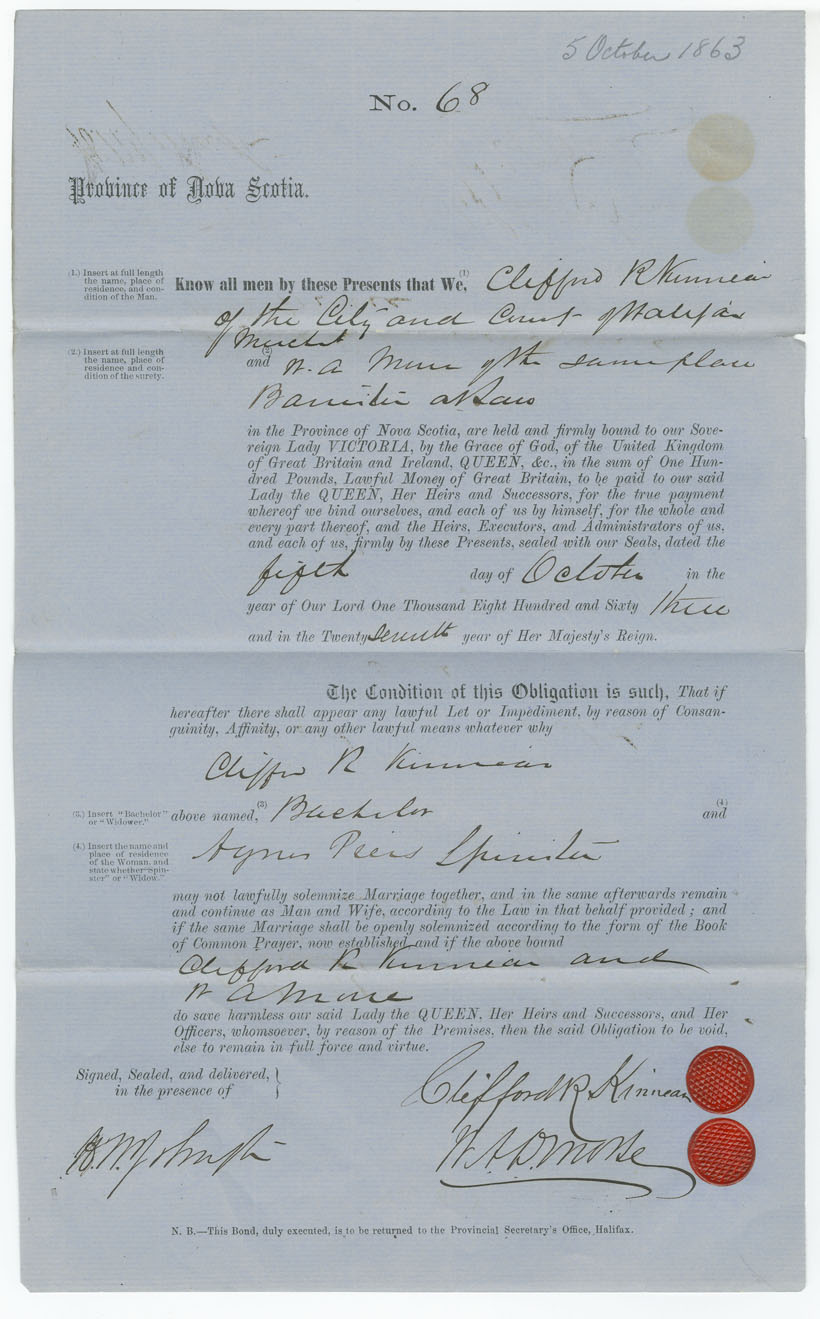 5 October 1863
No. 68
Province of Nova Scotia.
(1.) Insert at full length
the name, place of
residence, and con-
dition of the Man.
Know all men by these Presents that We, (1) Clifford R Kinnear
of the City and County of Halifax
Merchant
(2.) Insert at full length
the name, place of
residence and con-
dition of the surety.
and (2) W. A Morse of the same place
Barrister at Law
in the Province of Nova Scotia, are held and firmly bound to our Sove-
reign Lady VICTORIA, by the Grace of God, of the United Kingdom
of Great Britain and Ireland, QUEEN, &c., in the sum of One Hun-
dred Pounds, Lawful Money of Great Britain, to be paid to our said
Lady the QUEEN, Her Heirs and Successors, for the true payment
whereof we bind ourselves, and each of us by himself, for the whole and
every part thereof, and the Heirs, Executors, and Administrators of us,
and each of us, firmly by these Presents, sealed with our Seals, dated the
fifth day of October in the
year of Our Lord One Thousand Eight Hundred and Sixty three
and in the Twenty seventh year of Her Majesty's Reign.
The Condition of this Obligation is such, That if
hereafter there shall appear any lawful Let or Impediment, by reason of Consan-
guinity, Affinity, or any other lawful means whatever why
Clifford R Kinnear
(3.) Insert "Bachelor"
or "Widower."
above named, (3) Bachelor and (4)
(4.) Insert the name and
place of residence
of the Woman, and
state whether "Spin-
ster" or "Widow."
Agnes Piers Spinster
may not lawfully solemnize Marriage together, and in the same afterwards remain
and continue as Man and Wife, according to the Law in that behalf provided; and
if the same Marriage shall be openly solemnized according to the form of the Book
of Common Prayer, now established and if the above bound
Clifford R Kinnear and
W A Morse
do save harmless our said Lady the QUEEN, Her Heirs and Successors, and Her
Officers, whomsoever, by reason of the Premises, then the said Obligation to be void,
else to remain in full force and virtue.
Signed, Sealed, and delivered,
in the presence of
Clifford R Kinnear
W. A. D. Morse
N. B.—This Bond, duly executed, is to be returned to the Provincial Secretary's Office, Halifax.